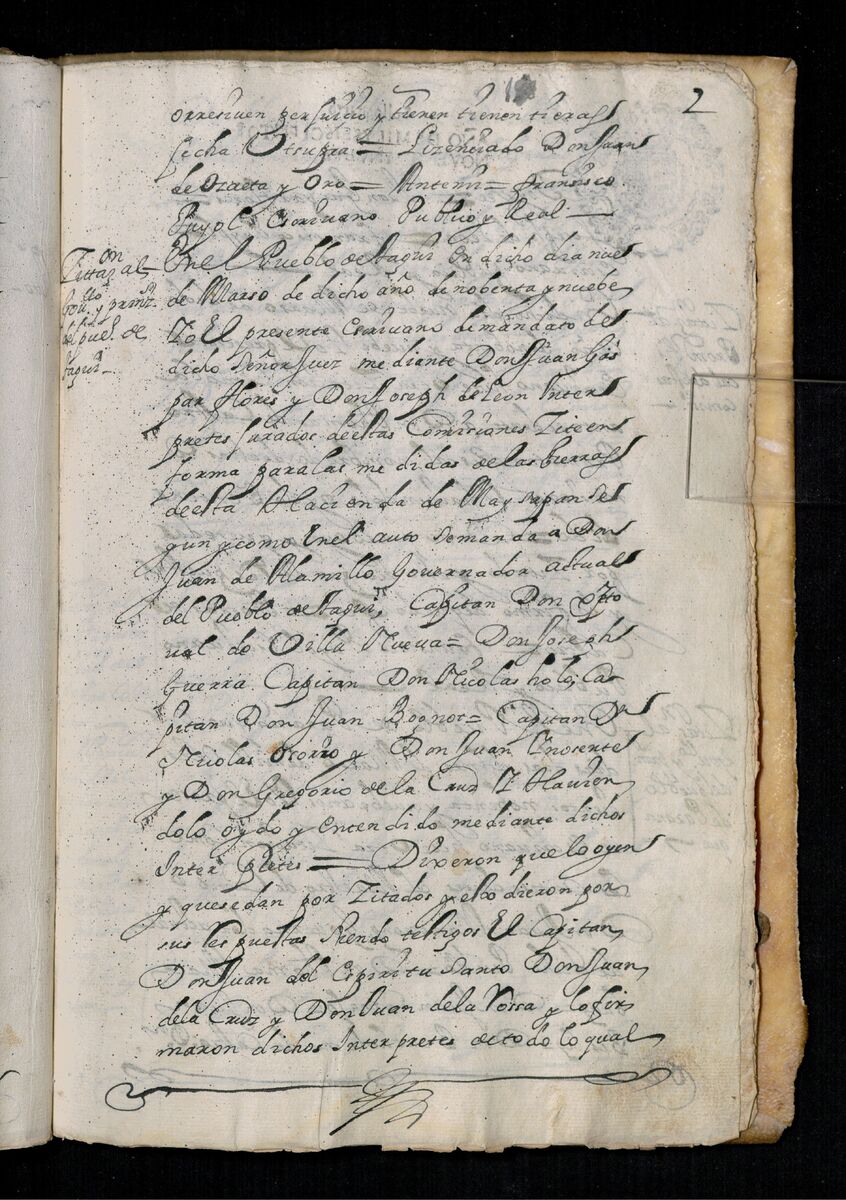 2
orresiven perJuicio y tienen tienen tierass
fecha Vtsupra = Lizenciado Don Juan
de Ozaeta y Oro = Antemi = franсisco
Puyol Escrivano Publico y Real —
Zittaz.on al
Gou.llo y prinz.s
del puel. de
Itaqui —
Enel Pueblo de Itaqui en dicho dia nueve
de Marso de dicho año de nobenta y nuebe
Yo El presente Escrivano demandato del
dicho Señor Juez mediante Don Juan Gas
par flores y Don Joseph de Leon Inter
pretes Jurados deestas Comiciones Zite en
forma para las medidas de las tierras
deesta Hacienda de Maysapan se
gun y como Enel auto semanda a Don
Juan de Alamillo Governador actual
del Pueblo de Itaqui, Capitan Don Xpto
ual de Villa Nueva = Don Joseph
Guerra Capitan Don Nicolas holo, Ca
pitan Don Juan Bognot = Capitan Dn
Nicolas Osorio y Don Juan Ynosente
y Don Gregorio de la Cruz Y Havien
dolo oydo y entendido mediante dichos
Inter pretes = Dixeron que lo oyen
y quesedan por Zitados y esto dieron por
sus Respuestas Siendo testigos El Capitan
Don Juan del Espiritu Santo Don Juan
dela Cruz y Don Juan dela Rossa y lo fir
maron dichos Interpretes de todo lo qual